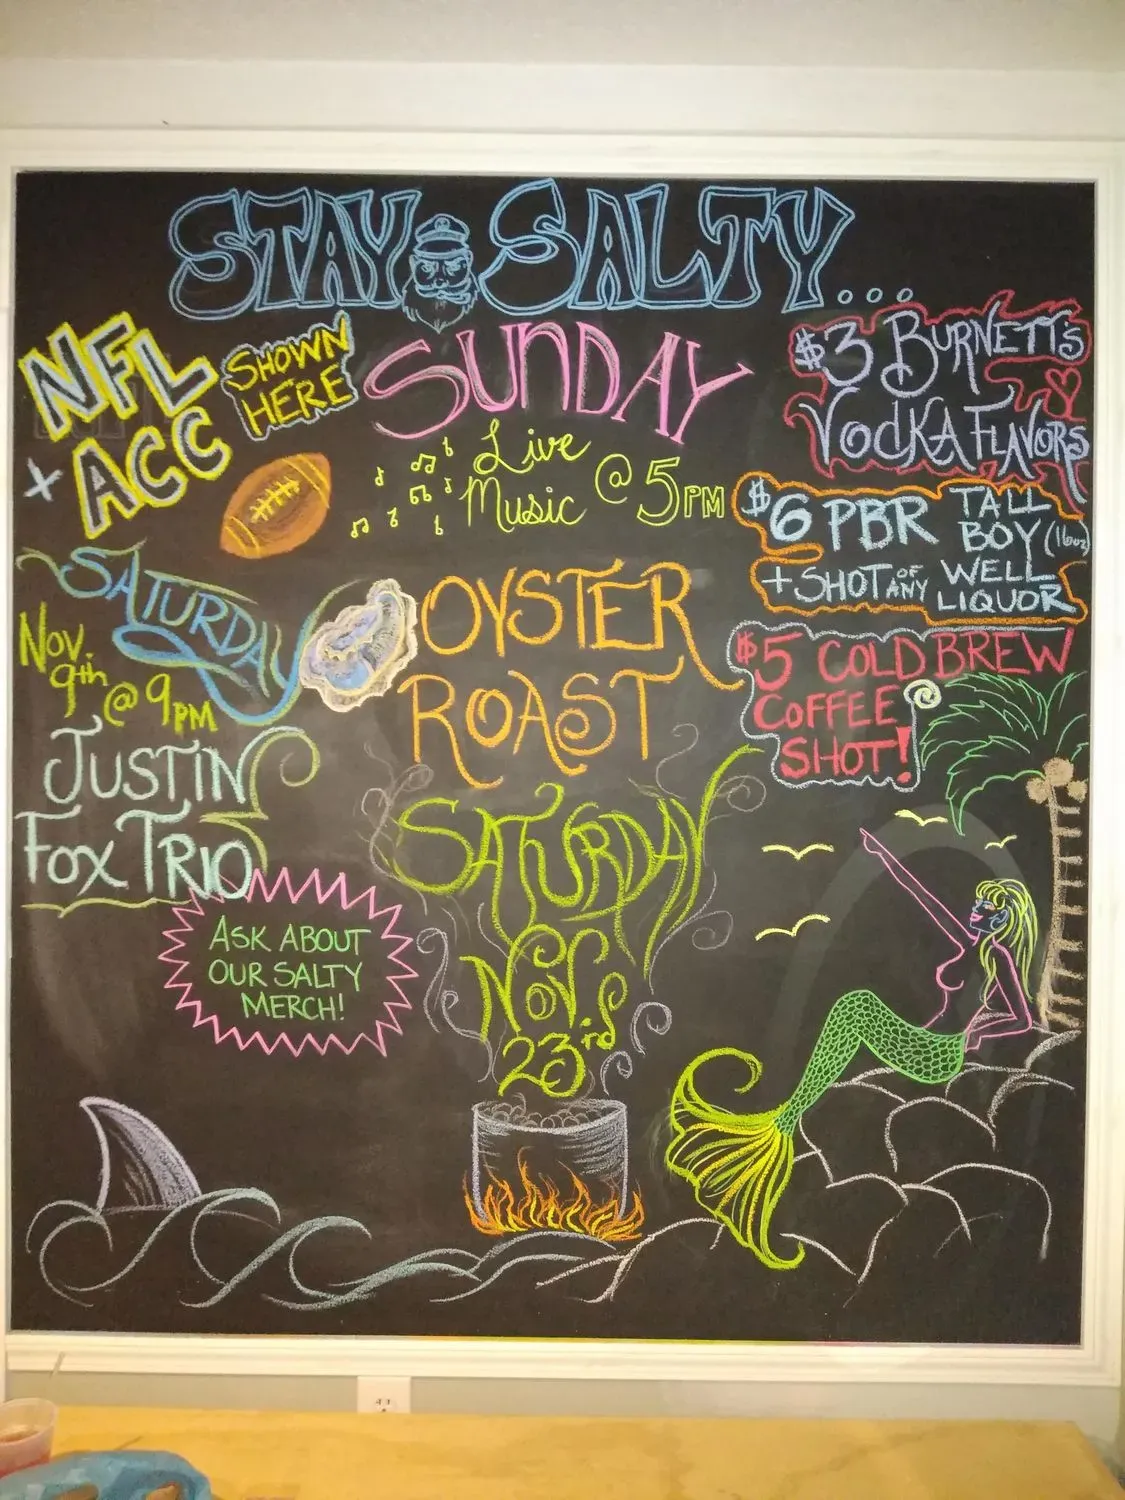 STAY SALTY...
NFL
+ ACC
SHOWN
HERE
SUNDAY
Live
Music
@ 5PM
$3 BURNETT'S
VODKA FLAVORS
$6 PBR TALL
BOY (16oz)
+ SHOT OF ANY WELL
LIQUOR
$5 COLD BREW
COFFEE
SHOT!
SATURDAY
NOV.
9th @ 9PM
JUSTIN
FOX TRIO
OYSTER
ROAST
SATURDAY
NOV.
23rd
ASK ABOUT
OUR SALTY
MERCH!